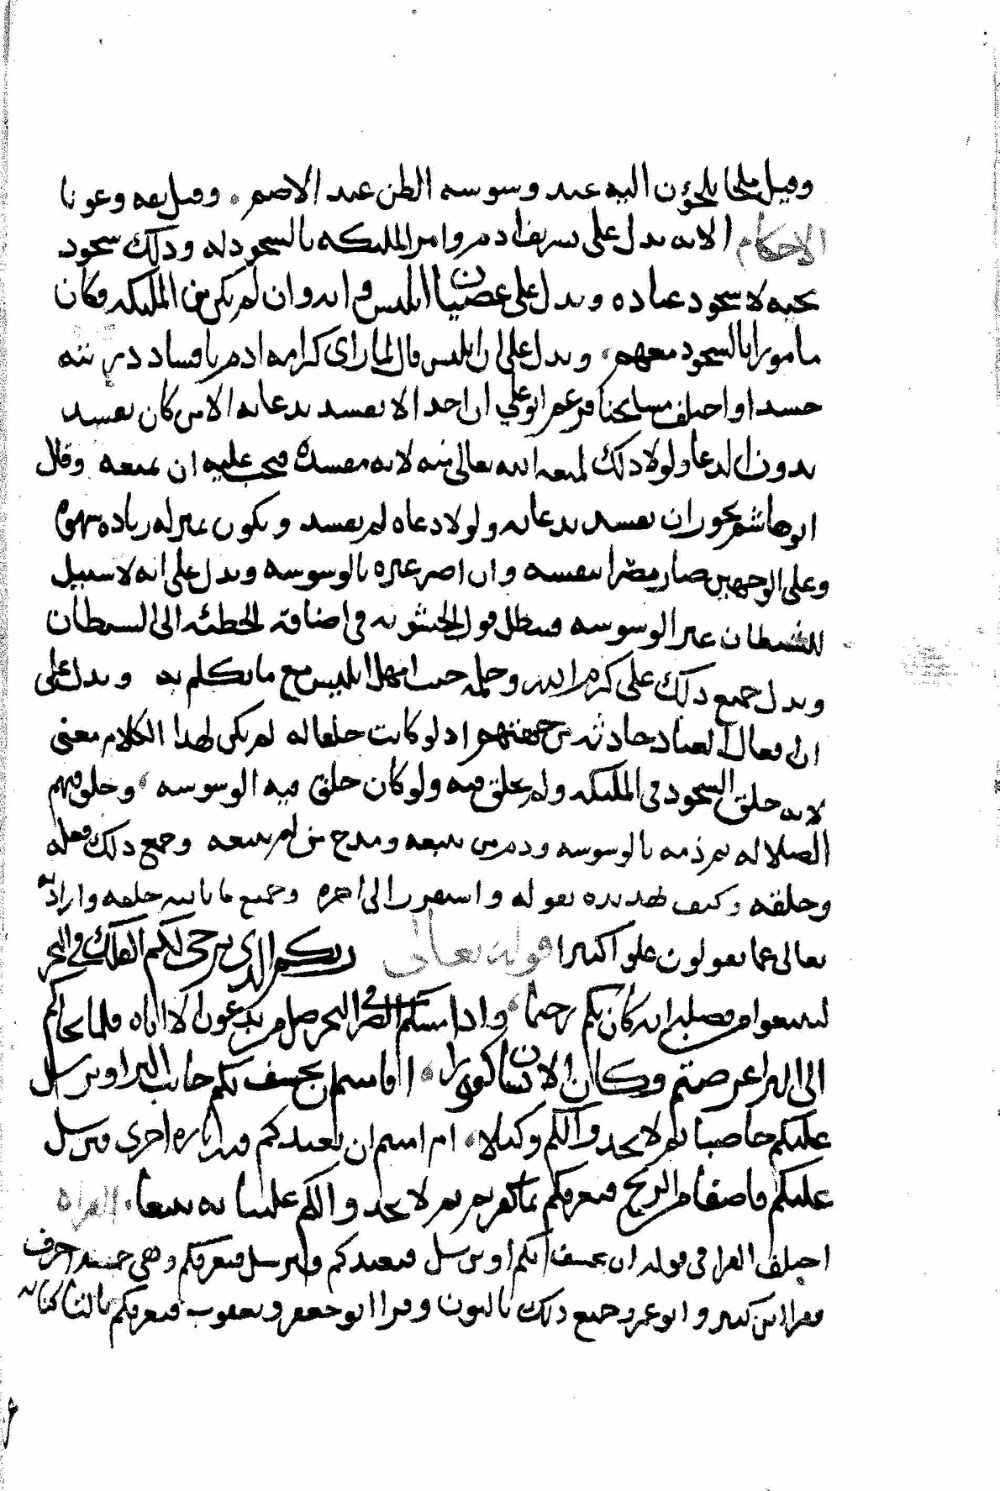 وقيل ملجأ يلجؤن اليه عند وسوسة الظن عند الاصم ۰ وقيل ثقة وعونا
الاحكام الاية يدل على تشريف ادم وامر المليكة بالسجود له وذلك سجود
تحية لا سجود عباده ويدل على عصيان ابليس وانه وان لم يكن من المليكه فكان
مامورا بالسجود معهم ۰ ويدل على ان ابليس قال لما راى كرامة ادم بافساد ذريته
حسدا واختلف مشايخنا فزعم ابو علي ان احدا لا يفسد بدعايه الا من كان يفسد
بدون الدعا ولولا ذلك لمنعه الله تعالى منه لانه مفسدة فيجب عليه ان يمنعه وقال
ابو هاشم يجوز ان يفسد بدعايه ولولا دعاه لم يفسد ويكون بمنزله زياده شهوة
وعلى الوجهين صار مضرا بنفسه وان اضر غيره بالوسوسه ويدل على انه لا سبيل
للشيطان غير الوسوسه فيبطل قول الحشوية في اضافة الخطئة الى الشيطان
ويدل جميع ذلك على كرم الله وحلمه حيث امهل ابليس مع ما تكلم به ويدل على
ان افعال العباد حادثة من جهتهم اذ لو كانت خلقا له لم يكن لهذا الكلام معنى
لانه خلق السجود في المليكه ولم يخلق فيه ولو كان خلق فيه الوسوسه ۰ وخلق فيهم
الضلاله ثم ذمه بالوسوسه وذم من تبعه ومدح من لم يتبعه وجميع ذلك فعله
وخلقه وكيف تهديده بقوله واستفزز الى اخره وجميع ما ياتيه خلقه وارادته
تعالى عما يقولون علوا كبيرا قوله تعالى ربكم الذي يزجي لكم الفلك في البحر
لتبتغوا من فضله انه كان بكم رحيما ۰ واذا مسكم الضر في البحر ضل من تدعون الا اياه فلما نجاكم
الى البر اعرضتم وكان الانسان كفورا ۰ افامنتم ان يخسف بكم جانب البر او يرسل
عليكم حاصبا ثم لا تجدوا لكم وكيلا ۰ ام امنتم ان يعيدكم فيه تارة اخرى فيرسل
عليكم قاصفا من الريح فيغرقكم بما كفرتم ثم لا تجدوا لكم علينا به تبيعا ۰ القراة
اختلف القرا في قوله ان يخسف بكم او يرسل فيعيدكم فيرسل فيغرقكم وهي خمسة احرف
فقرا ابن كثير وابو عمرو جميع ذلك بالنون وقرا ابو جعفر ويعقوب فيغرقكم بالتا